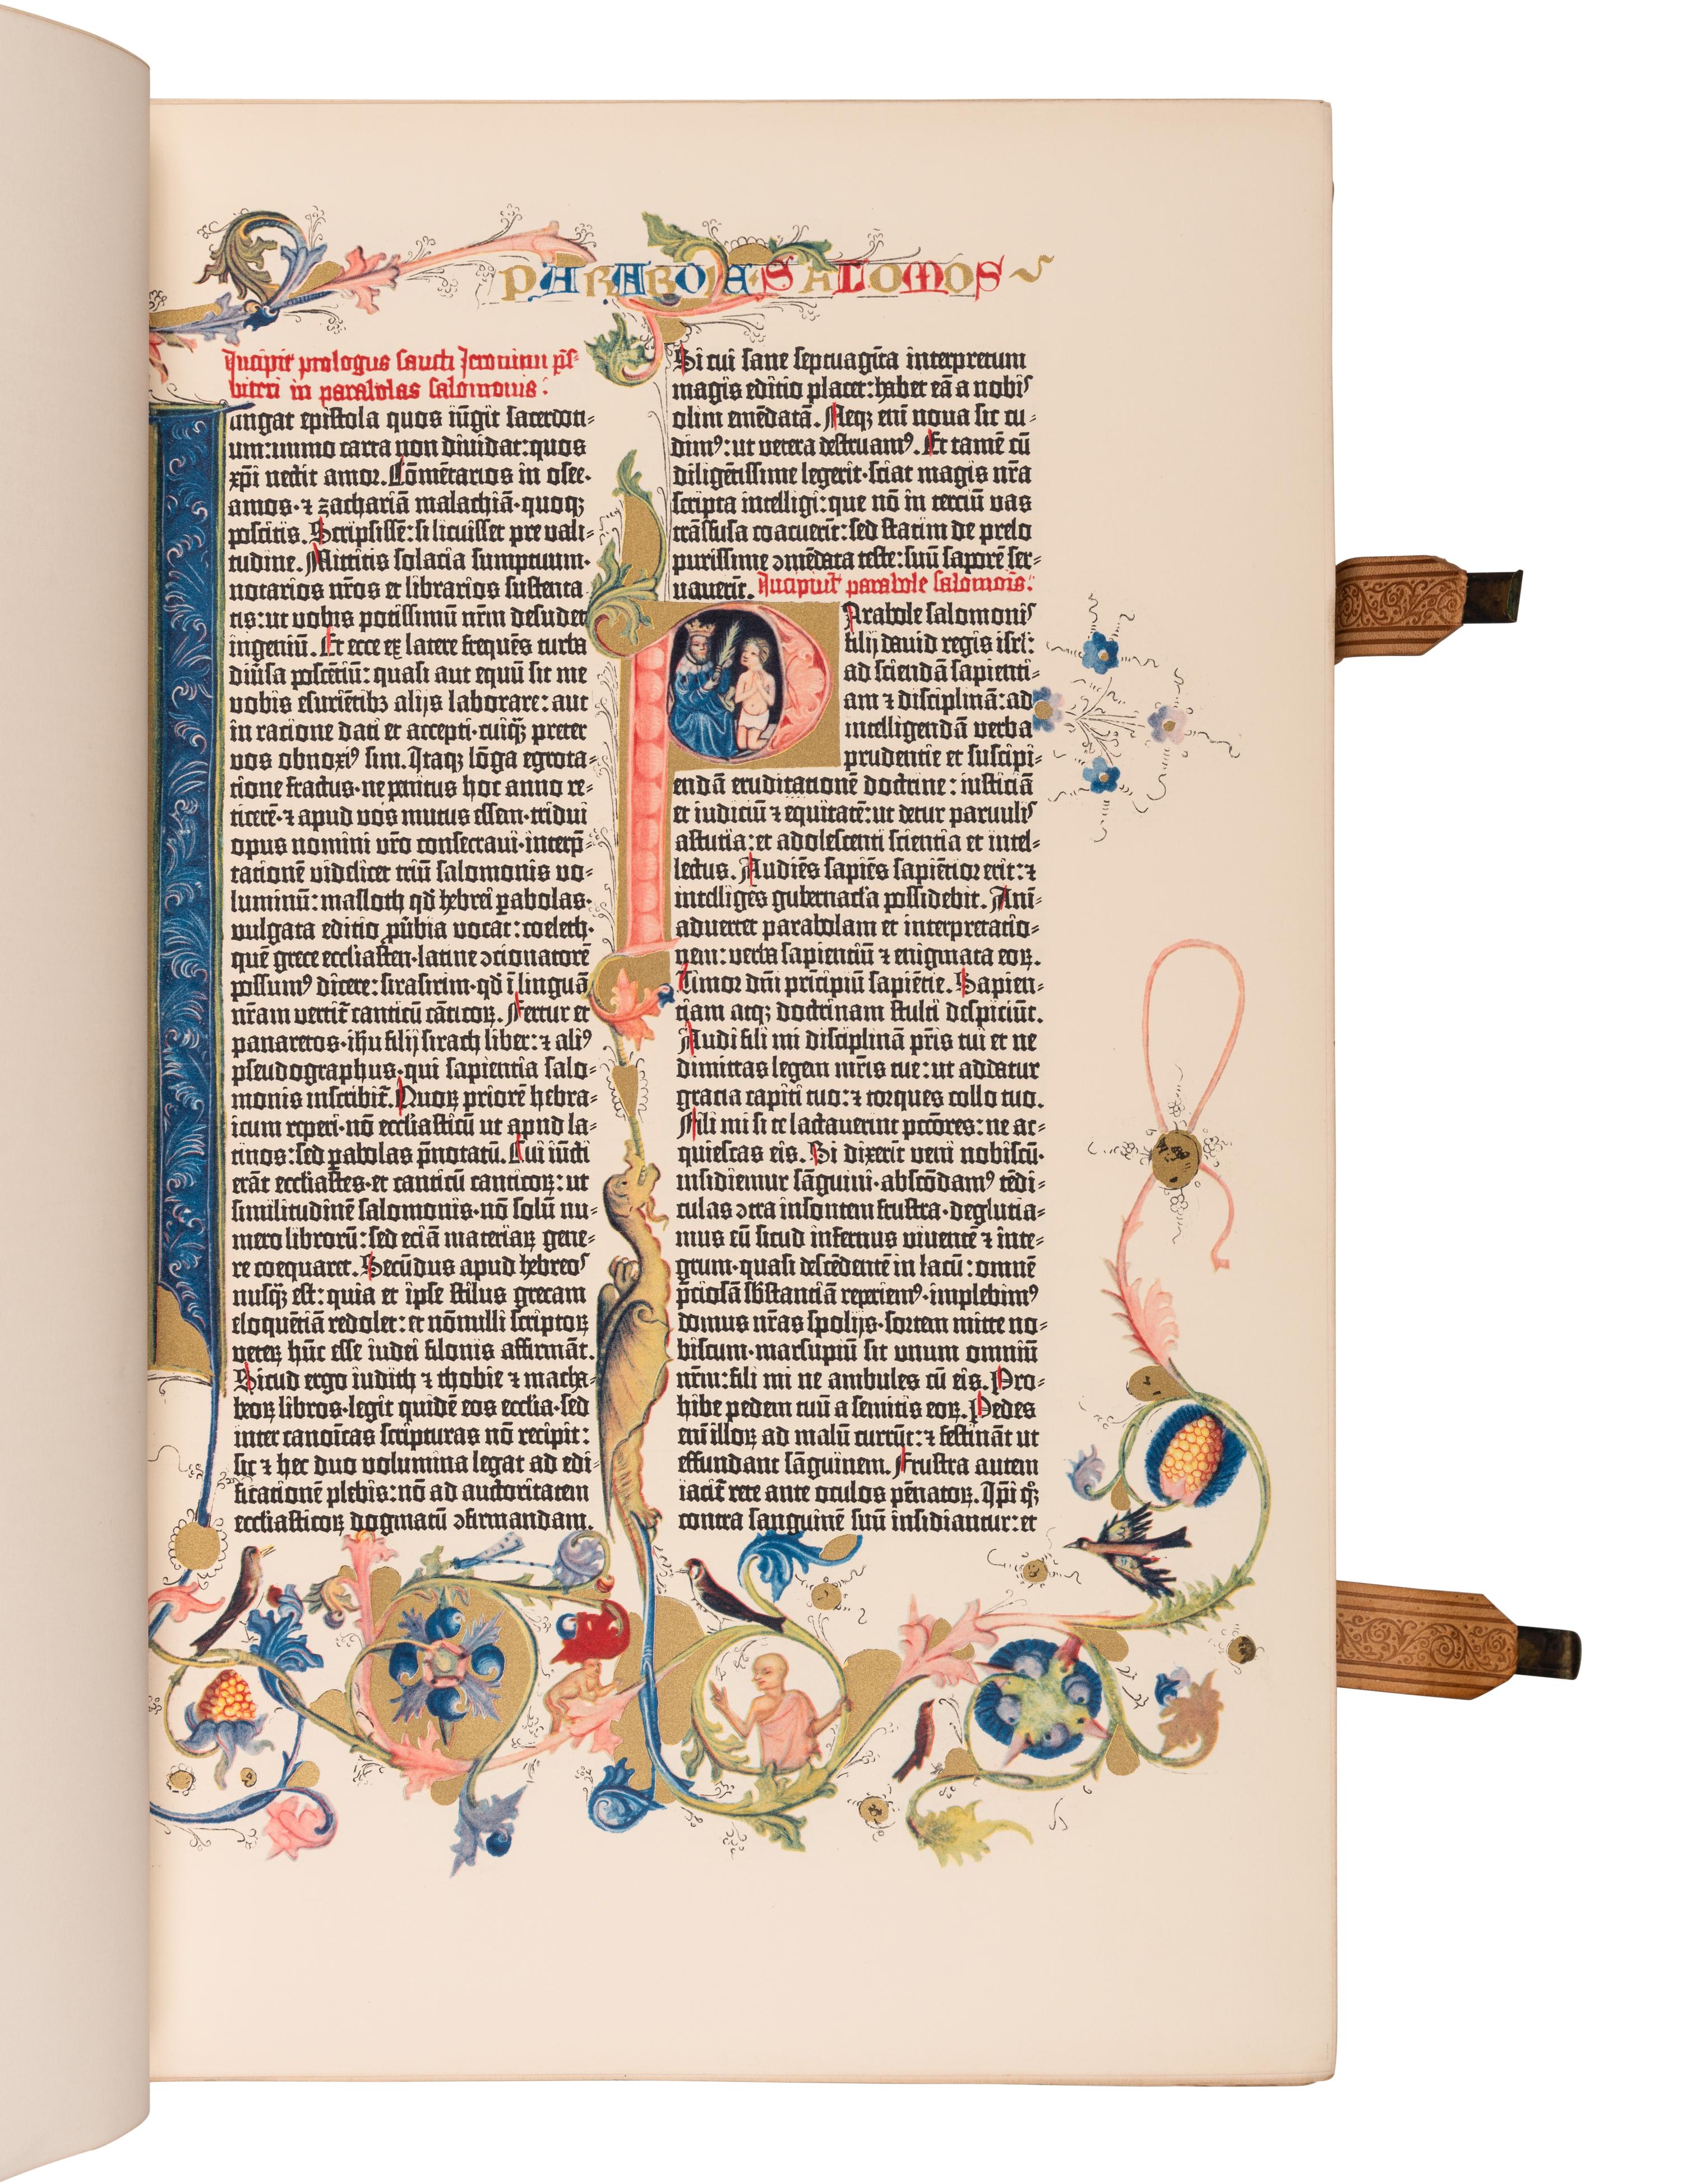 PARABOLAE SALOMOS
Incipit prologus sancti Jeronimi p̄s-
biteri in parabolas salomonis:
Iungat epistola quos iūgit sacerdoti-
um: immo carta non diuidat: quos
xp̄i nectit amor. Cōmētarios in osee.
amos. ⁊ zachariā malachiā. quoqꝫ
poscitis. Scripsissē: si licuisset pre vali-
tudine. Mittitis solacia sumptuum.
notarios nr̄os et librarios sustenta-
tis: ut vobis potissimū nr̄m desudet
ingeniū. Et ecce ex latere frequēs turba
diūsa poscētiū: quasi aut equū sit me
vobis esuriētibꝫ alijs laborare: aut
in racione dati et accepti. cuiqꝫ preter
vos obnoxiꝰ sim. Itaqꝫ lōga egrota-
tione fractus. ne penitus hoc anno re-
ticerē. ⁊ apud vos mutus essem. tridui
opus nomini vr̄o consecraui. interp̄-
tationē videlicet triū salomonis vo-
luminū: masloth qd̄ hebrei ꝑabolas.
vulgata editio ꝓūbia vocat: coeleth.
quē grece ecclesiasten. latine ꝯcionatorē
possumꝰ dicere: sirasirim. qd̄ ī linguā
nr̄am vertit̄ canticū cāticoꝝ. Fertur et
panaretos. ihu filij sirach liber: ⁊ aliꝰ
pseudographus. qui sapientia salo-
monis inscribit̄. Quoꝝ priorē hebra-
icum reperi. nō ecclesiasticū ut apud la-
tinos: sed ꝑabolas p̄notatū. Cui iūcti
erāt ecclesiastes. et canticū canticoꝝ: ut
similitudinē salomonis. nō solū nu-
mero librorū: sed eciā materiaꝝ gene-
re coequaret. Secūdus apud hebreos
nusqꝫ est: quia et ipse stilus grecam
eloquētiā redolet: et nōnulli scriptoꝝ
veteꝝ hūc esse iudei filonis affirmāt.
Sicud ergo iudith ⁊ thobie ⁊ macha-
beoꝝ libros. legit quidē eos ecclia. sed
inter canoīcas scripturas nō recipit:
sic ⁊ hec duo volumina legat ad edi-
ficationē plebis: nō ad auctoritatem
ecclesiasticoꝝ dogmatū ꝯfirmandam.
Si cui sane septuagīta interpretum
magis editio placet: habet eā a nobis
olim emēdatā. Neqꝫ enī noua sic cu-
dimꝰ: ut vetera destruamꝰ. Et tamē cū
diligētissime legerit. sciat magis nr̄a
scripta intelligi: que nō in terciū vas
trāsfusa coacuerīt: sed statim de prelo
purissime ꝯmēdata teste: suū saporē ser-
uauerīt. Incipiūt parabole salomōis:
Parabole salomonis
filij dauid regis isrl̄:
ad sciendā sapienti-
am ⁊ disciplinā: ad
intelligendā verba
prudentie et suscipi-
endā eruditationē doctrine: iusticiā
et iudiciū ⁊ equitatē: ut detur paruulis
astutia: et adolescenti scientia et intel-
lectus. Audiēs sapiēs sapiētior erit: ⁊
intelliges gubernacl̄a possidebit. Ani-
aduertet parabolam et interpretatio-
nem: verba sapientiū ⁊ enigmata eoꝝ.
Timor dn̄i prīcipiū sapiētie. Sapien-
tiam atqꝫ doctrinam stulti despiciūt.
Audi fili mi disciplinā pr̄is tui et ne
dimittas legem mr̄is tue: ut addatur
gracia capiti tuo: ⁊ torques collo tuo.
Fili mi si te lactauerint pctōres: ne ac-
quiescas eis. Si dixerīt veni nobiscū.
insidiemur sāguini. abscōdamꝰ tēdi-
culas ꝯtra insontem frustra. deglutia-
mus eū sicud infernus viuentē ⁊ inte-
grum. quasi descēdentē in lacū: omnē
p̄ciosā sb̄stantiā reperiemꝰ. implebimꝰ
domus nr̄as spolijs. sortem mitte no-
biscum. marsupiū sit unum omniū
nr̄m: fili mi ne ambules cū eis. Pro-
hibe pedem tuū a semitis eoꝝ. Pedes
enī illoꝝ ad malū currūt: ⁊ festināt ut
effundant sāguinem. Frustra autem
iacit̄ rete ante oculos pēnatoꝝ. Ip̄i qꝫ
contra sanguinē suū insidiantur: et